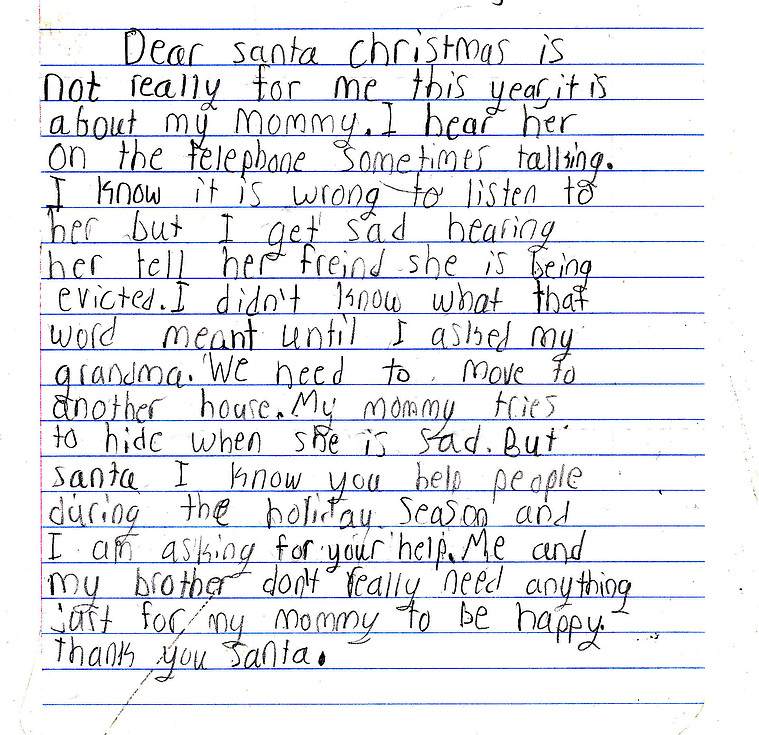 Dear santa christmas is
not really for me this year, it is
about my mommy. I hear her
on the telephone sometimes talking.
I know it is wrong to listen to
her but I get sad hearing
her tell her freind she is being
evicted. I didn't know what that
word meant until I asked my
grandma. We need to move to
another house. My mommy tries
to hide when she is sad. But
santa I know you help people
during the holiday season and
I am asking for your help. Me and
my brother don't really need anything
just for my mommy to be happy.
thank you Santa.